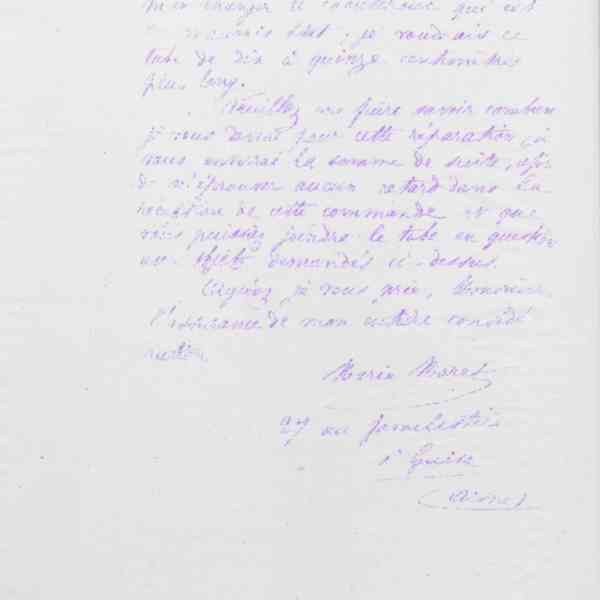 m'en changer le caoutchouc qui est
en mauvais état ; je voudrais ce
tube de dix à quinze centimètres
plus long.
Veuillez me faire savoir combien
je vous devrai pour cette réparation, je
vous enverrai la somme de suite, afin
de n'éprouver aucun retard dans la
réception de cette commande et que
vous puissiez joindre le tube en question
aux objets demandés ci-dessus.
Agréez je vous prie, Monsieur,
l'assurance de mon entière considé
ration.
Marie Moret
au familistère
à Guise
(Aisne)